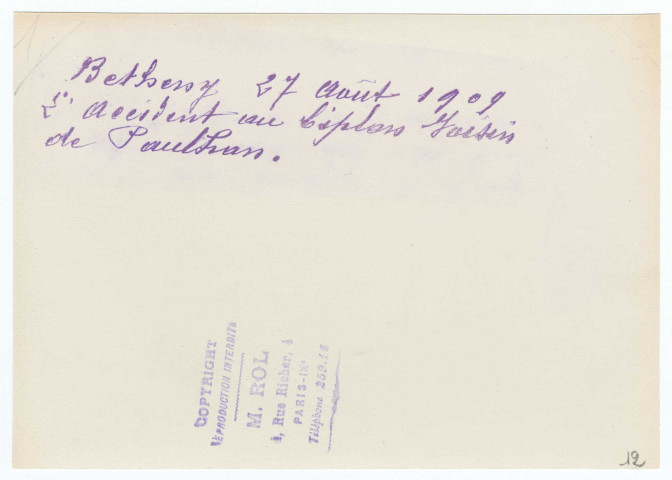 Betheny 27 Août 1909
L'Accident au biplan Voisin
de Paulhan.
COPYRIGHT
REPRODUCTION INTERDITE
M. ROL
4, Rue Richer, 4
PARIS-IXe
Téléphone 259.18
12